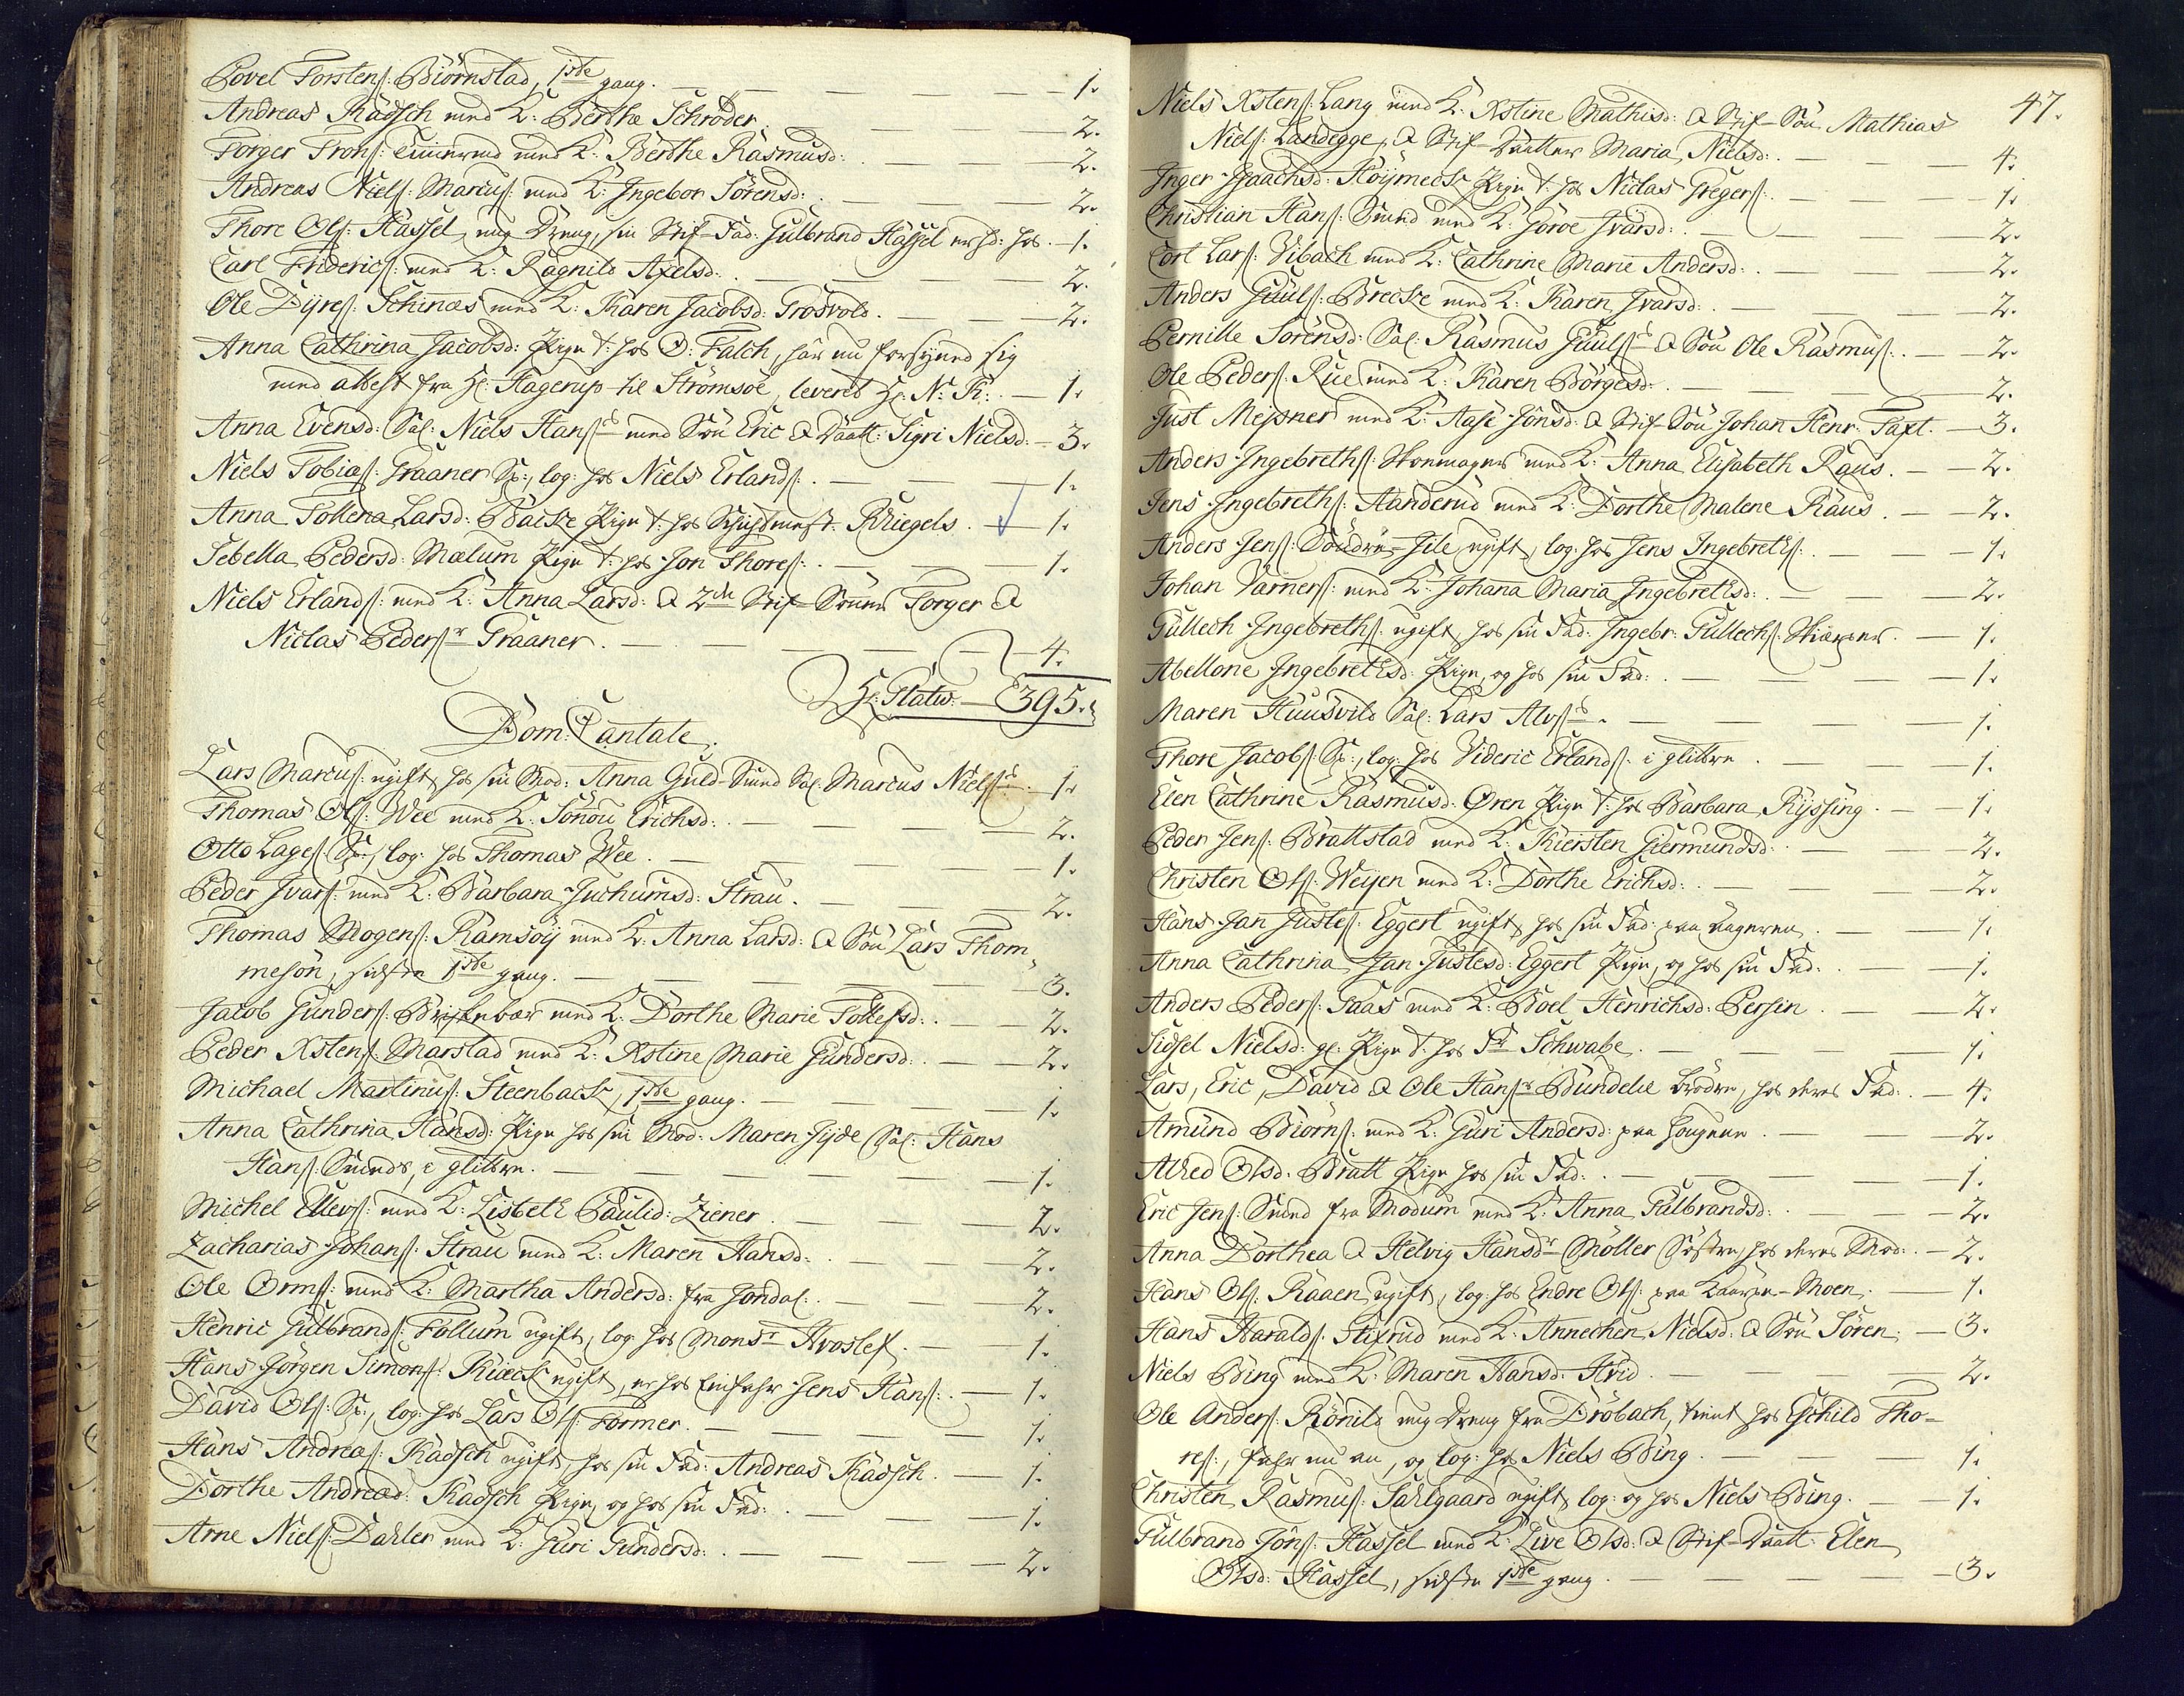 Povel Torstens: Biörnstad, 1ste gang. — 1.
Andreas Kädsch med K: Berthe Schröder. — 2.
Torger Trons: med K: Berthe Rasmusd: — 2.
Andreas Niels: Marcus: med K: Ingebor Sörensd: — 2.
Thore Ols: Hassel, ung Dreng, sin Stif-Fad: Gulbrand Hassel hos. — 1.
Carl Friderics: med K: Ragnild Axelsd: — 2.
Ole Dyres: Schinæs med K: Karen Jacobsd: Trosvold. — 2.
Anna Cathrina Jacobsd: Pige t: hos O: Falch, har nu forsyned sig
med attest fra Hr: Hagerup til Strömsöe, levered Hr: N: K: — 1.
Anna Evensd: Sal: Niels Hans: med Sön Eric & Daatt: Sigri Nielsd: — 3.
Niels Tobias: Graaner Sp:, log: hos Niels Erlands: — 1.
Anna Tollena Larsd: Backe Pige t: hos Kriegels. — 1.
Sebella Pedersd: Mælum Pige t: hos Jon Thores: — 1.
Niels Erlands: med K: Anna Larsd: & 2de Stif-Sönner Torger &
Niclas Peders: Graaner. — 4.
Hr: Platw: — 395.
Dom: Cantate.
Lars Marcus: ugift, hos sin Mod: Anna Guld-Smed Sal: Marcus Niels: — 1.
Thomas Ols: Wee med K: Sönou Erichsd: — 2.
Otto Lages: Sp:, log: hos Thomas Wee. — 1.
Peder Ivars: med K: Barbara Juchumsd: Strau. — 2.
Thomas Mogens: Ramsöy med K: Anna Larsd: & Sön Lars Thom-
mesön, sidste 1ste gang. — 3.
Jacob Gunders: med K: Dorthe Marie Tollefsd: — 2.
Peder Xstens: Marstad med K: Xstine Marie Gundersd: — 2.
Michael Martinus: Steenback, 1ste gang. — 1.
Anna Cathrina Hansd: Pige hos sin Mod: Maren Gyde Sal: Hans
Hans: Smeds, i glitten. — 1.
Michel Ellevs: med K: Lisbeth Paulid: Ziener. — 2.
Zacharias Johans: Strau med K: Maren Hansd: — 2.
Ole Orms: med K: Martha Andersd: fra Jondal. — 2.
Henric Gulbrands: Follum ugift, log: hos Monsr Hvoslef. — 1.
Hans Jörgen Simons: Kiæck ugift, er hos Jens Hans: — 1.
David Ols: Sp:, log: hos Lars Ols: Former. — 1.
Hans Andreas: Kädsch ugift, hos sin Fad: Andreas Kädsch. — 1.
Dorthe Andread: Kadsch Pige, og hos sin Fad: — 1.
Arne Niels: Dahler med K: Guri Gundersd: — 2.
47.
Niels Xstens: Lang med K: Xstine Mathisd: & Stif-Sön Mathias
Niels: Landegge, & Stif-Daatter Maria Nielsd: — 4.
Inger Isaachsd: Höymeck Pige t: hos Niclas Gregers: — 1.
Christian Hans: Smed med K: Göroe Ivarsd: — 2.
Cort Lars: Vibach med K: Cathrine Marie Andersd: — 2.
Anders Guuls: Brecke med K: Karen Ivarsd: — 2.
Pernille Sörensd: Sal: Rasmus Guuls: & Sön Ole Rasmus: — 2.
Ole Peders: Rue med K: Karen Börgesd: — 2.
Just Meissner med K: Aase Jonsd: & Stif-Sön Johan Henr: Taxt. — 3.
Anders Ingebreths: Skomager med K: Anna Elisabeth Raus. — 2.
Jens Ingebreths: Handerud med K: Dorthe Malene Raus. — 2.
Anders Jens: Söndre-Jile ugift, log: hos Jens Ingebreths: — 1.
Johan Varners: med K: Johana Maria Ingebrethsd: — 2.
Gullech Ingebreths: ugift, hos sin Fad: Ingebr: Gullechs: — 1.
Abellone Ingebrethsd: Pige, og hos sin Fad: — 1.
Maren Huusvild Sal: Lars Alvs: — 1.
Thore Jacobs: Sp:, log: hos Videric Erlands: i glitten. — 1.
Elen Cathrine Rasmusd: Øren Pige t: hos Barbara Ryssing. — 1.
Peder Jens: Brattstad med K: Kiersten Giermundsd: — 2.
Christen Ols: Weyen med K: Dorthe Erichsd: — 2.
Hans Jan Justes: Eggert ugift, hos sin Fad: paa — 1.
Anna Cathrina Jan Justesd: Eggert Pige, og hos sin Fad: — 1.
Anders Peders: Saas med K: Boel Henrichsd: Persin. — 2.
Sidsel Nielsd: gl: Pige t: hos Sr Schwabe. — 1.
Lars, Eric, David & Ole Hans: Bundelie brödre, hos deres Fad: — 4.
Amund Biörns: med K: Guri Andersd: paa Hougene. — 2.
Alhed Olsd: Bratt Pige hos sin Fad: — 1.
Eric Jens: Smed fra Modum med K: Anna Gulbrandsd: — 2.
Anna Dorthea & Helvig Hansdr Möller Söstre, hos deres Mod: — 2.
Hans Ols: Raaen ugift, log: hos Endre Ols: paa Moen. — 1.
Hans Haralds: Stixrud med K: Annechen Nielsd: & Sön Sören. — 3.
Niels Bing med K: Maren Hansd: Hvid. — 2.
Ole Anders: Rönild ung Dreng fra Dröbach, tient hos Eschild Tho-
res:, og log: hos Niels Bing. — 1.
Christen Rasmus: Sahlgaard ugift, log: og hos Niels Bing. — 1.
Gulbrand Jons: Hassel med K: Live Olsd: & Stif-Daatt: Elen
Olsd: Hassel, sidste 1ste gang. — 3.